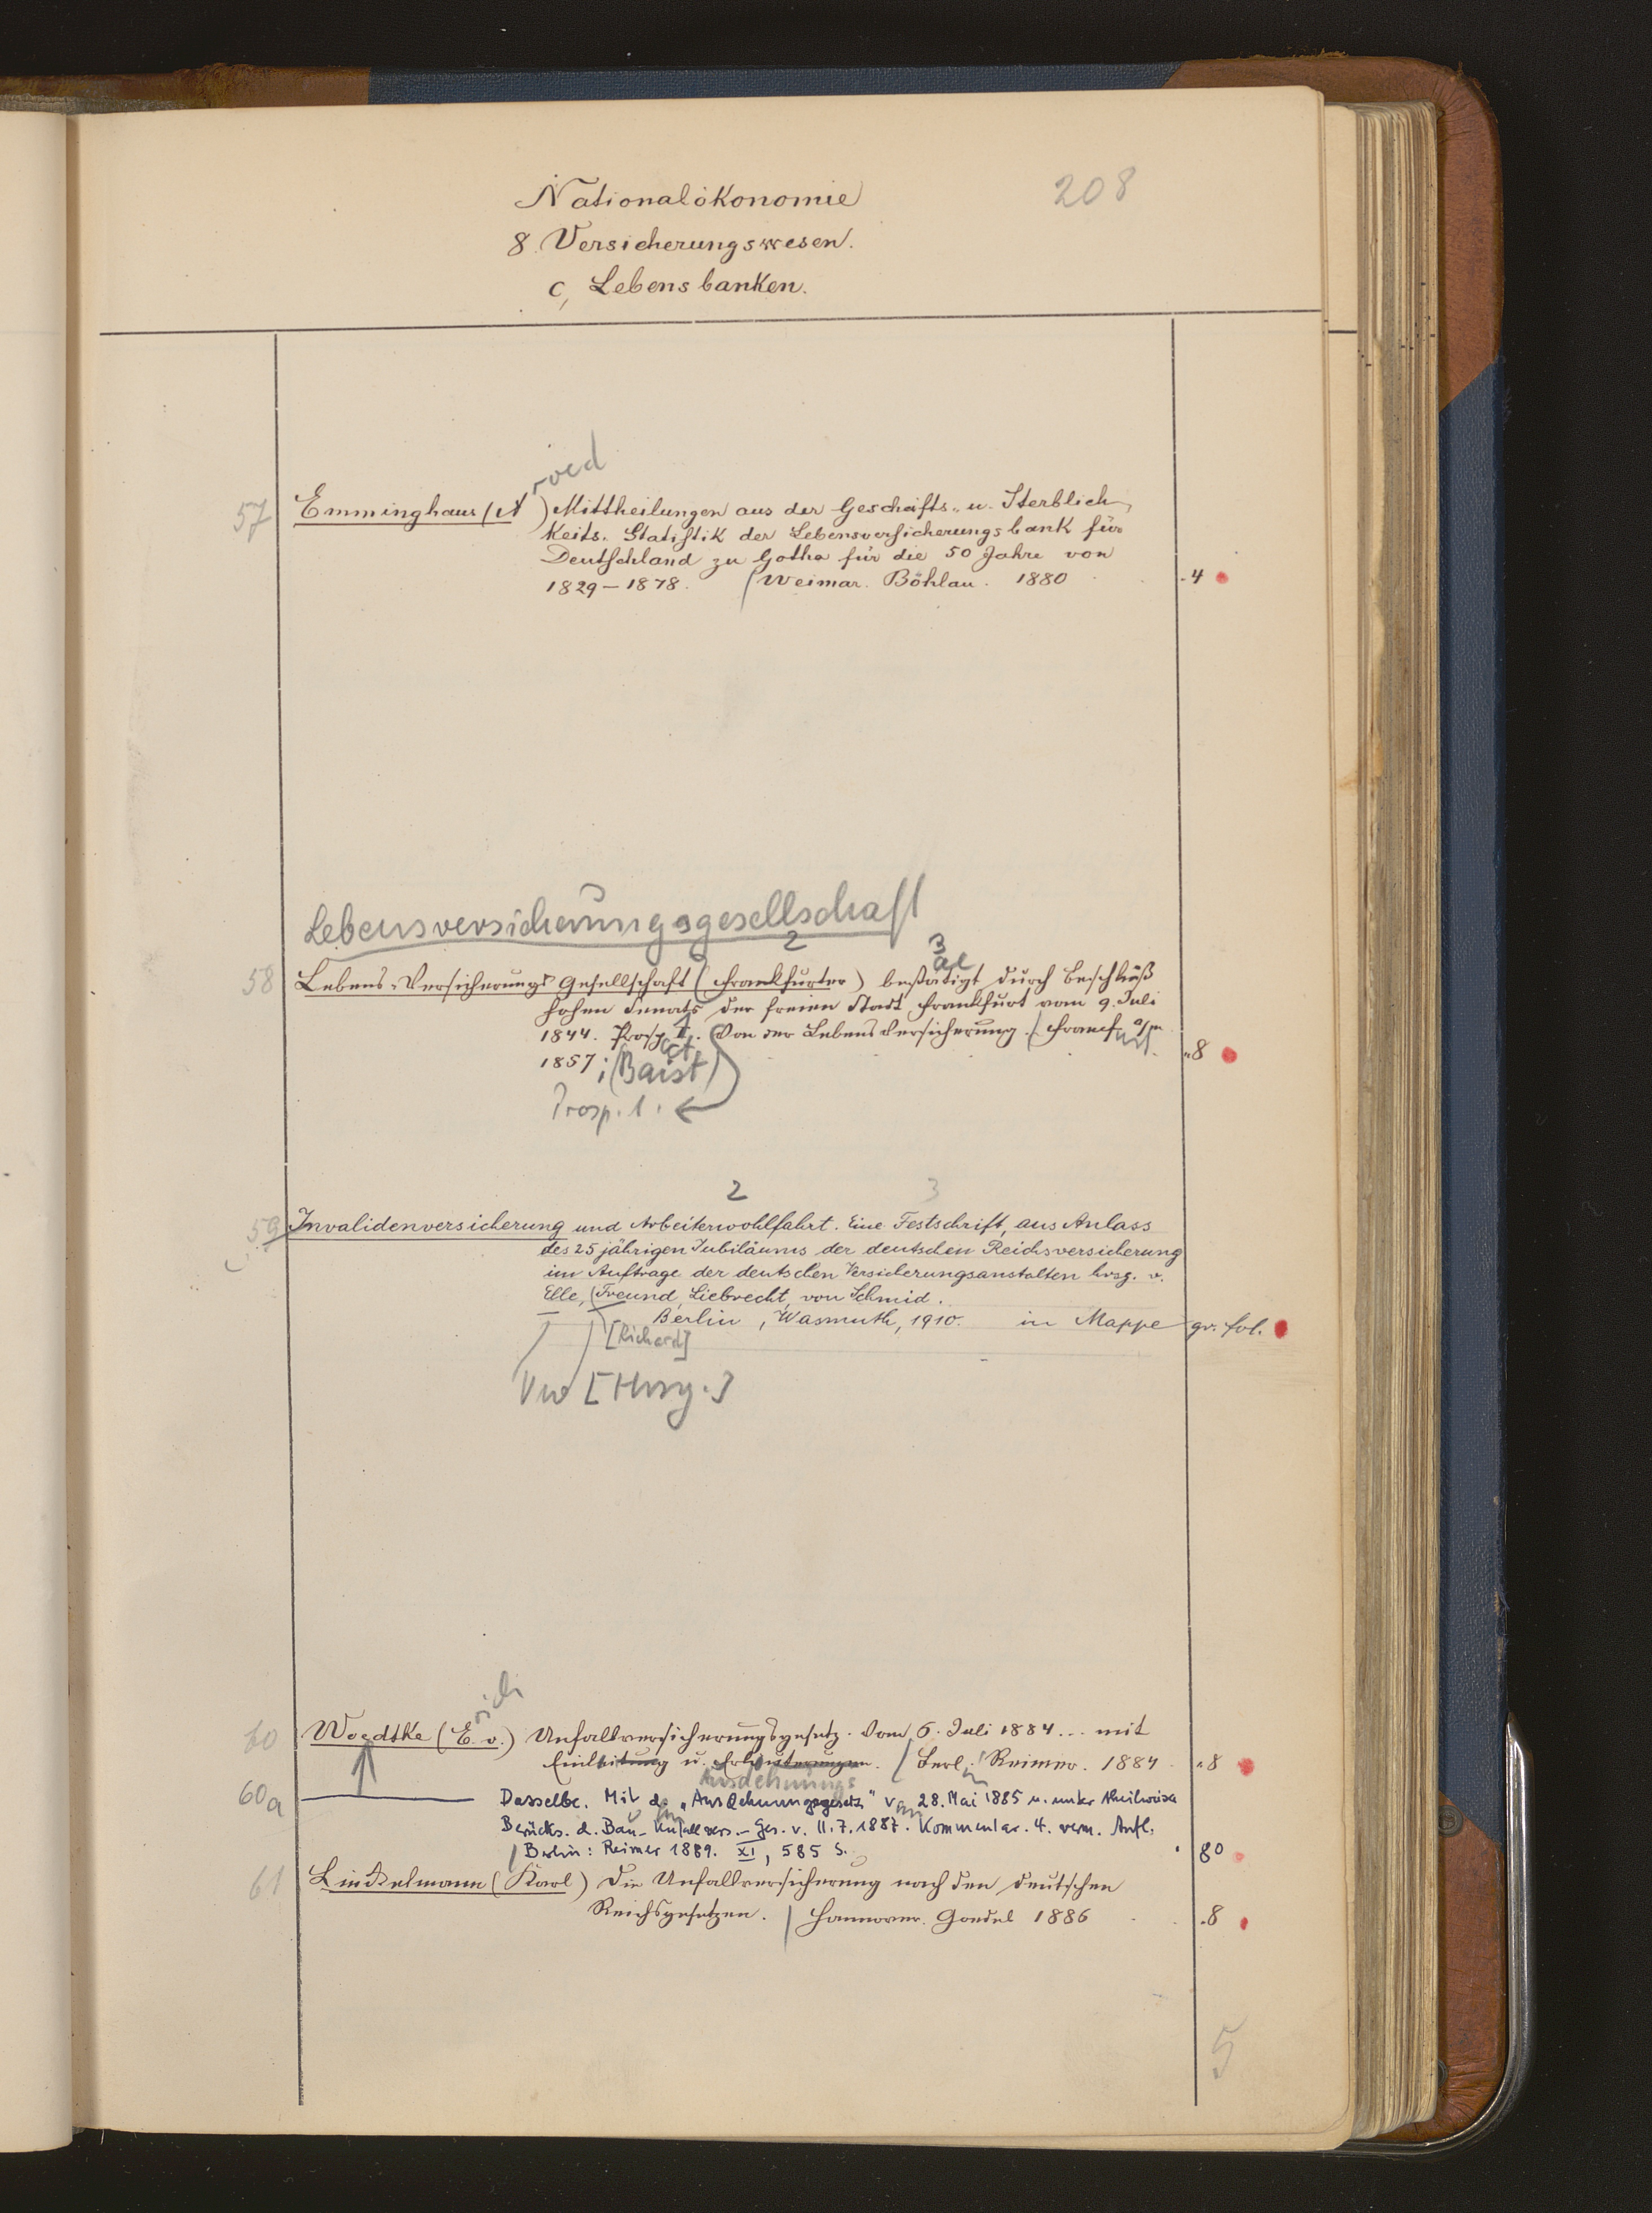 208
Nationalökonomie
8. Versicherungswesen.
c, Lebensbanken.
rwed
57 Emminghaus (A ) Mittheilungen aus der Geschäfts- u. Sterblich-
keits. Statistik der Lebensversicherungsbank für
Deutschland zu Gotha für die 50 Jahre von
1829–1878. / Weimar. Böhlau. 1880 4
Lebensversicherungsgesellschaft
2 3
58 Lebens-Versicherungs Gesellschaft (Frankfurter) bestätigt durch Beschluß
hohen Senats der freien Stadt Frankfurt vom 9. Juli
1844. Prosp. 1. Von der Lebensversicherung. / Francf a/m
1857 ; (Baist) 8
Prosp. 1.
2 3
59 Invalidenversicherung und Arbeiterwohlfahrt. Eine Festschrift, aus Anlass
des 25 jährigen Jubiläums der deutschen Reichsversicherung
im Auftrage der deutschen Versicherungsanstalten hrsg. v.
Elle, Freund, Liebrecht, von Schmid.
Berlin, Wasmuth, 1910. in Mappe gr. fol.
[Richard]
Vw [Hrsg.]
rich
60 Woedtke (E. v.) Unfallversicherungsgesetz. Vom 6. Juli 1884 ... mit
Einleitung u. Erläuterungen. / Berl.: Reimer. 1884 8
Ausdehnungs
60a Dasselbe. Mit d. "Ausdehnungsgesetz" v. 28. Mai 1885 u. unter theilweiser
Berücks. d. Bau-Unfallvers.-Ges. v. 11.7.1887. Kommentar. 4. verm. Aufl.
/ Berlin: Reimer 1889. XI, 585 S. 80
61 Linkelmann (Karl) Die Unfallversicherung nach den deutschen
Reichsgesetzen. / Hannover. Goedel 1886 8
5